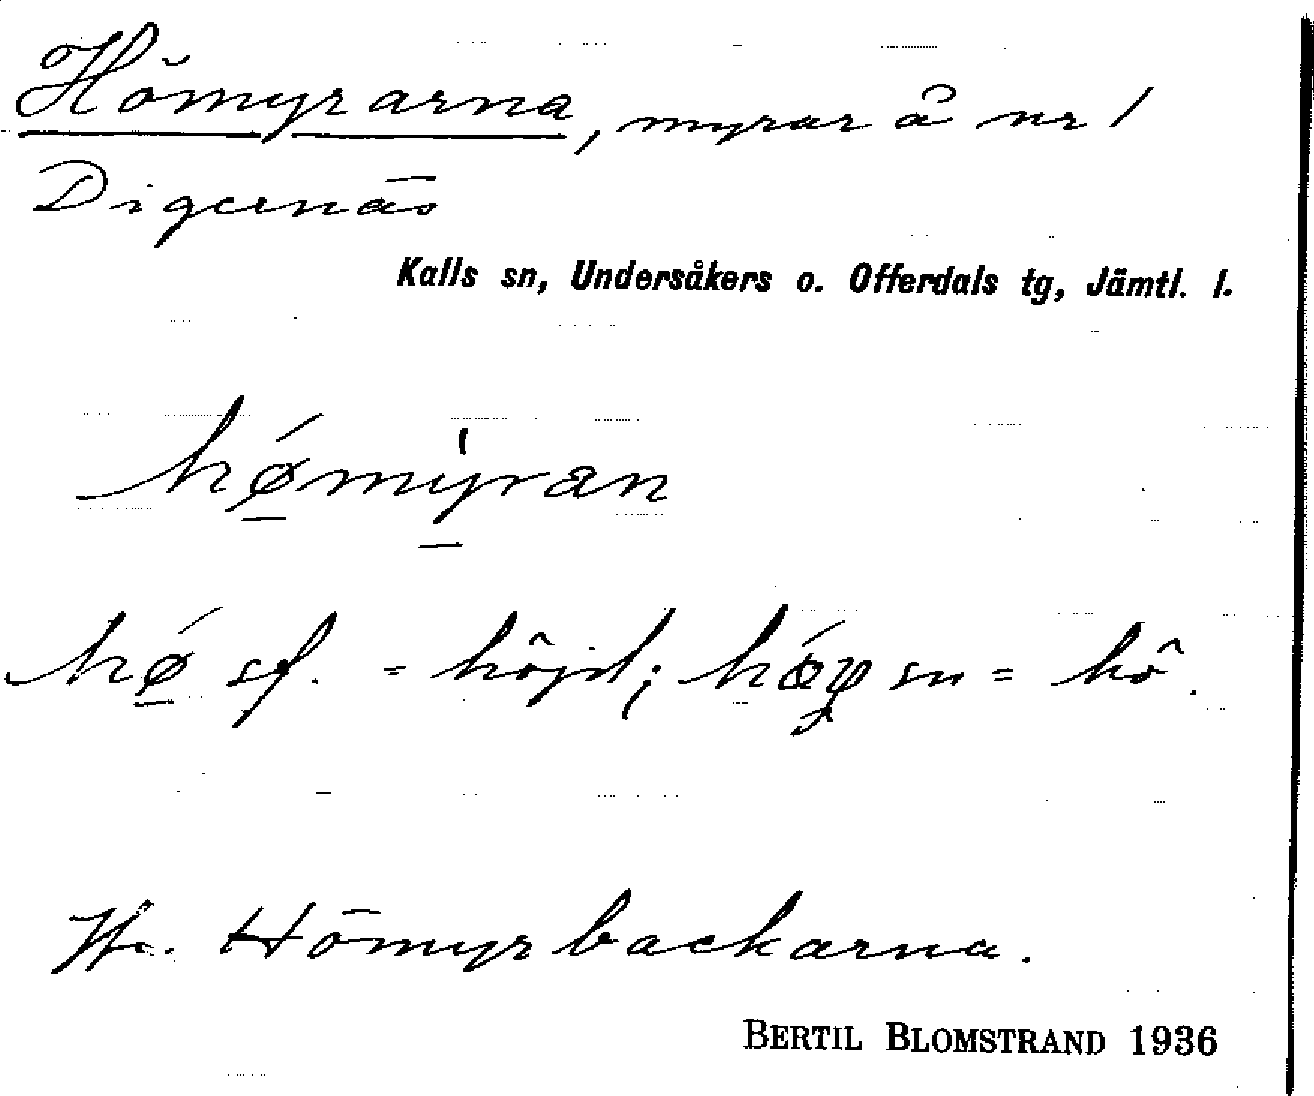 Hömyrarna, myrar å nr 1
Digernäs
Kalls sn, Undersåkers o. Offerdals tg, Jämtl. l.
hǿ̲my̲̍ran
hǿ̲ sf. = höjd; sn = hö.
Hömyrbackarna.
BERTIL BLOMSTRAND 1936